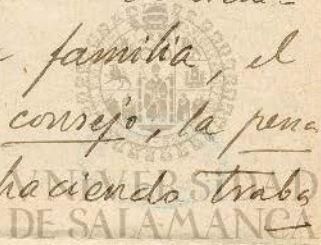 familia, el
consejo, la pena
haciendo traba
UNIVERSIDAD
DE SALAMANCA